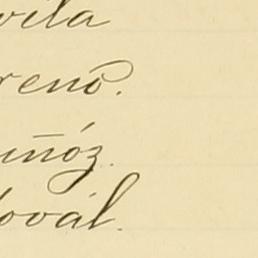 vila
renó.
uñóz.
dovál.